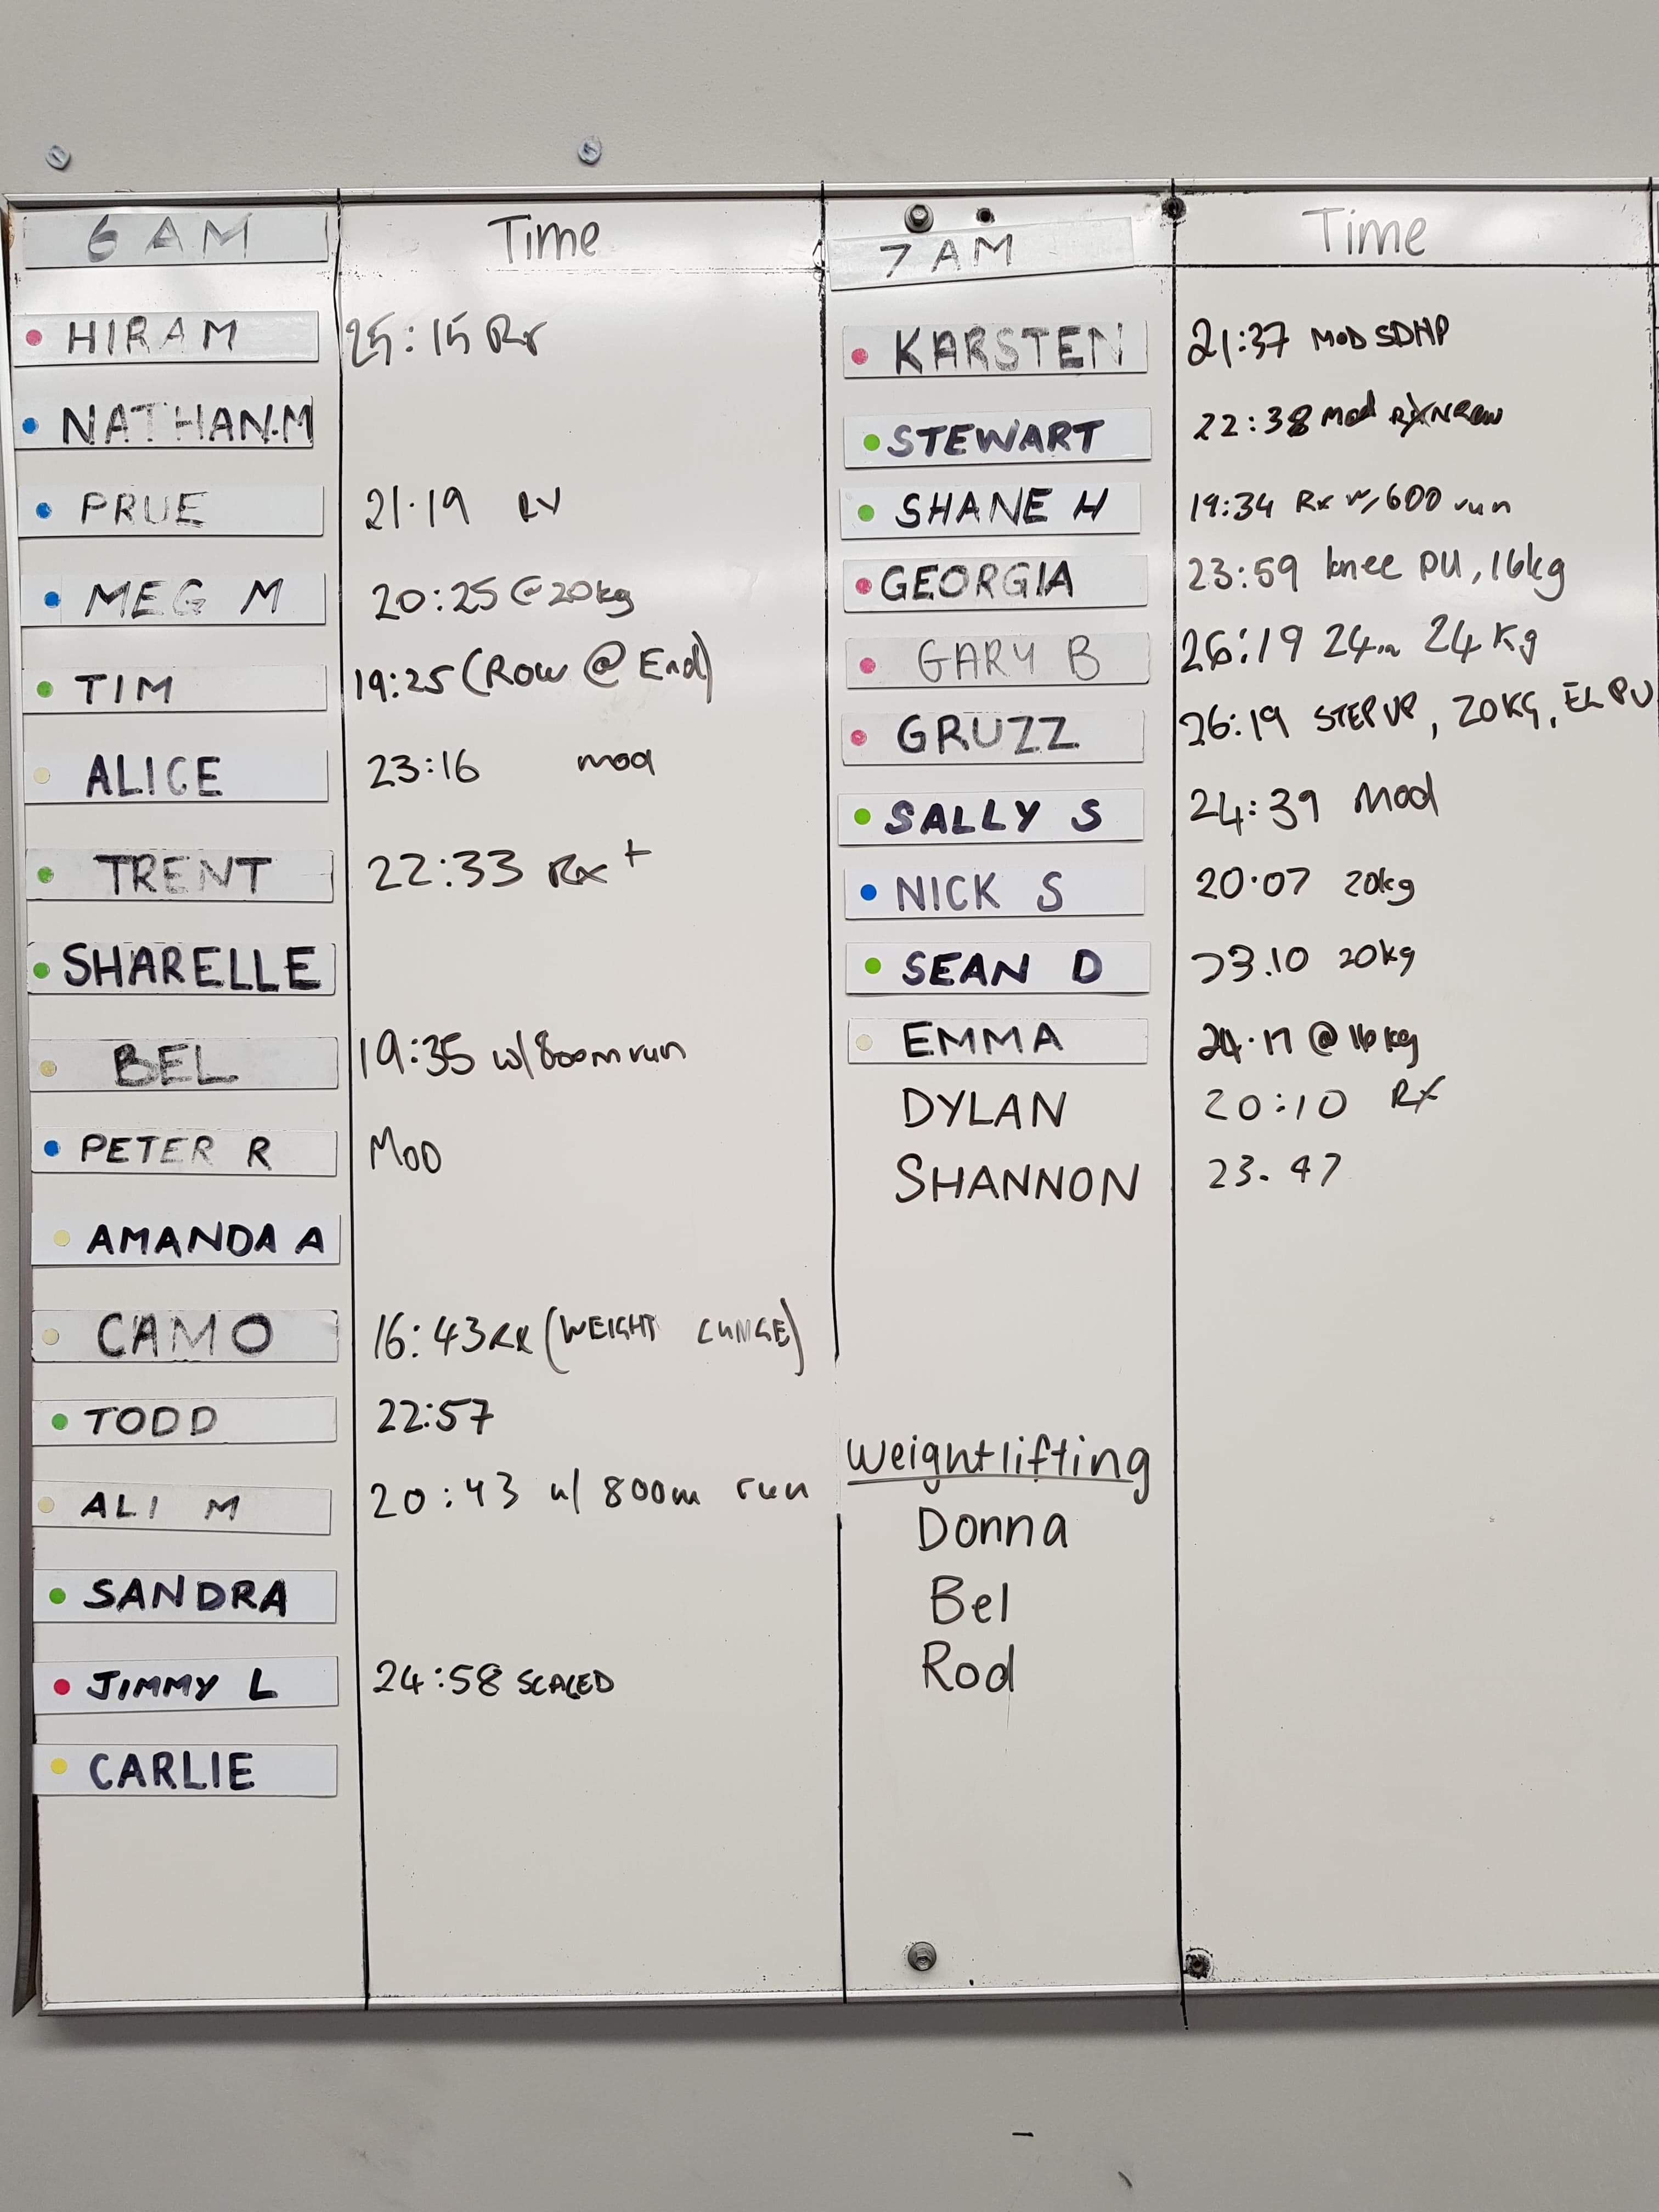 6 AM Time
HIRAM 25:15 Rx
NATHAN.M
PRUE 21.19 RX
MEG M 20:25 @20kg
TIM 19:25 (Row @ End)
ALICE 23:16 mod
TRENT 22:33 Rx+
SHARELLE
BEL 19:35 w/800m run
PETER R MOD
AMANDA A
CAMO 16:43 RX (WEIGHT
TODD 22:57
ALI M 20:43 w/ 800m run
SANDRA
JIMMY L 24:58 SCALED
CARLIE
7 AM Time
KARSTEN 21:37 MOD SDHP
STEWART 22:38 mod
SHANE H 19:34 Rx w/600 run
GEORGIA 23:59 knee PU, 16kg
GARY B 26:19 24 Kg
GRUZZ 26:19 STEP UP, 20KG, EL PU
SALLY S 24:39 Mod
NICK S 20.07 20kg
SEAN D 23.10 20kg
EMMA @ 16kg
DYLAN 20:10 RX
SHANNON 23.47
Weightlifting
Donna
Bel
Rod